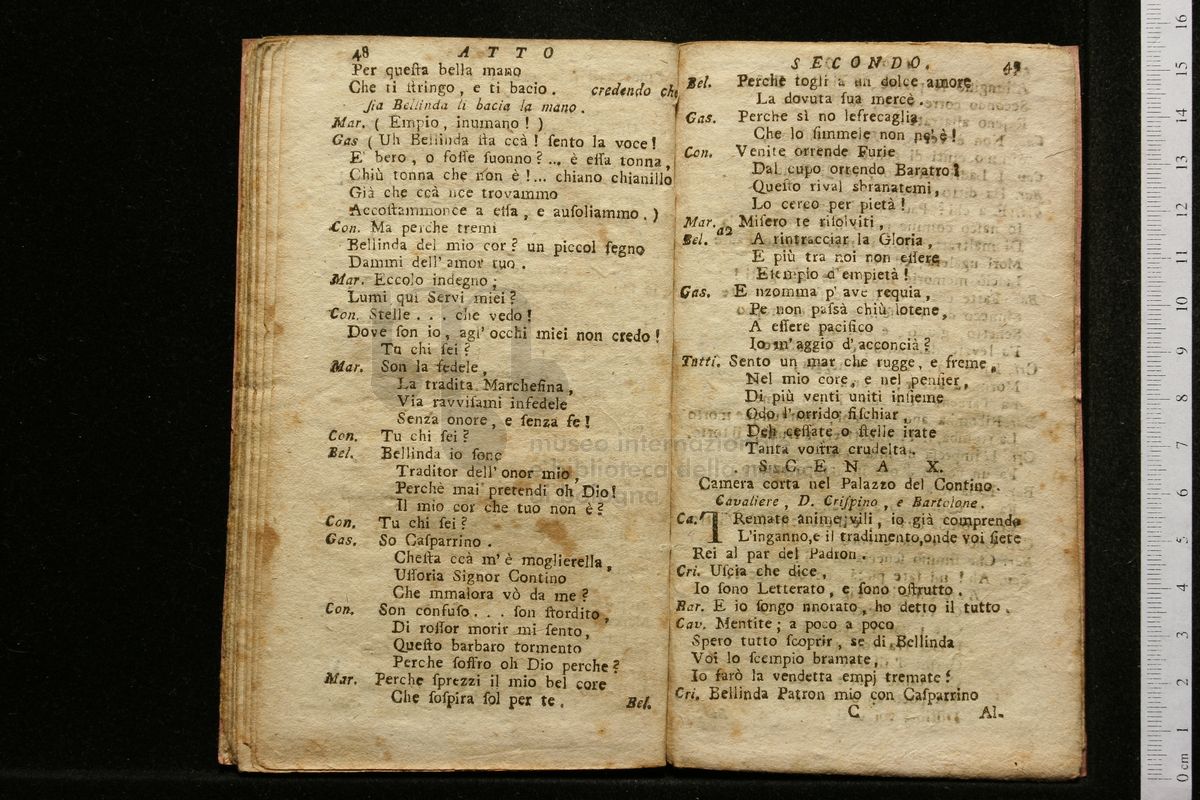 48 ATTO
Per queſta bella mano
Che ti ſtringo, e ti bacio. credendo che
ſia Bellinda li bacia la mano.
Mar. ( Empio, inumano! )
Gas ( Uh Bellinda ſta ccà! ſento la voce!
E' bero, o foſſe ſuonno?... è eſſa tonna,
Chiù tonna che non è!... chiano chianillo
Già che ccà nce trovammo
Accoſtammonce a eſſa, e auſoliammo. )
Con. Ma perche tremi
Bellinda del mio cor? un piccol ſegno
Dammi dell' amor tuo.
Mar. Eccolo indegno,
Lumi qui Servi miei?
Con. Stelle... che vedo!
Dove ſon io, agl' occhi miei non credo!
Tu chi ſei?
Mar. Son la fedele,
La tradita Marcheſina,
Via ravviſami infedele
Senza onore, e ſenza fe!
Con. Tu chi ſei?
Bel. Bellinda io ſono
Traditor dell' onor mio,
Perchè mai pretendi oh Dio!
Il mio cor che tuo non è?
Con. Tu chi ſei?
Gas. So Caſparrino.
Cheſta ccà m' è moglierella,
Uſſoria Signor Contino
Che mmalora vò da me?
Con. Son confuſo... ſon ſtordito,
Di roſſor morir mi ſento,
Queſto barbaro tormento
Perche ſoffro oh Dio perche?
Mar. Perche ſprezzi il mio bel core
Che ſoſpira ſol per te.
Bel.
SECONDO. 49
Bel. Perchè togli a un dolce amore
La dovuta ſua mercè.
Gas. Perche sì no lefrecaglia
Che lo ſimmele non nc'è!
Con. Venite orrende Furie
Dal cupo orrendo Baratro!
Queſto rival sbranatemi,
Lo cerco per pietà!
Mar. Miſero te riſolviti,
a2
Bel. A rintracciar la Gloria,
E più tra noi non eſſere
Eſempio d'empietà!
Gas. E nzomma p' ave requia,
Pe non paſsà chiù lotene,
A eſſere pacifico
Io m' aggio d' acconcià?
Tutti. Sento un mar che rugge, e freme,
Nel mio core, e nel penſier,
Di più venti uniti inſieme
Odo l' orrido fiſchiar,
Deh ceſſate o ſtelle irate
Tanta voſtra crudelta.
SCENA X.
Camera corta nel Palazzo del Contino.
Cavaliere, D. Criſpino, e Bartolone.
Ca. TRemate anime vili, io già comprendo
L'inganno,e il tradimento,onde voi ſiete
Rei al par del Padron.
Cri. Uſcia che dice,
Io ſono Letterato, e ſono oſtrutto.
Bar. E io ſongo nnorato, ho detto il tutto.
Cav. Mentite; a poco a poco
Spero tutto ſcoprir, se di Bellinda
Voi lo ſcempio bramate,
Io farò la vendetta empj tremate!
Cri. Bellinda Patron mio con Caſparrino
C AI-
museo internazionale
e biblioteca della musica
di bologna
16
15
14
13
12
11
10
9
8
7
6
5
4
3
2
1
0 cm